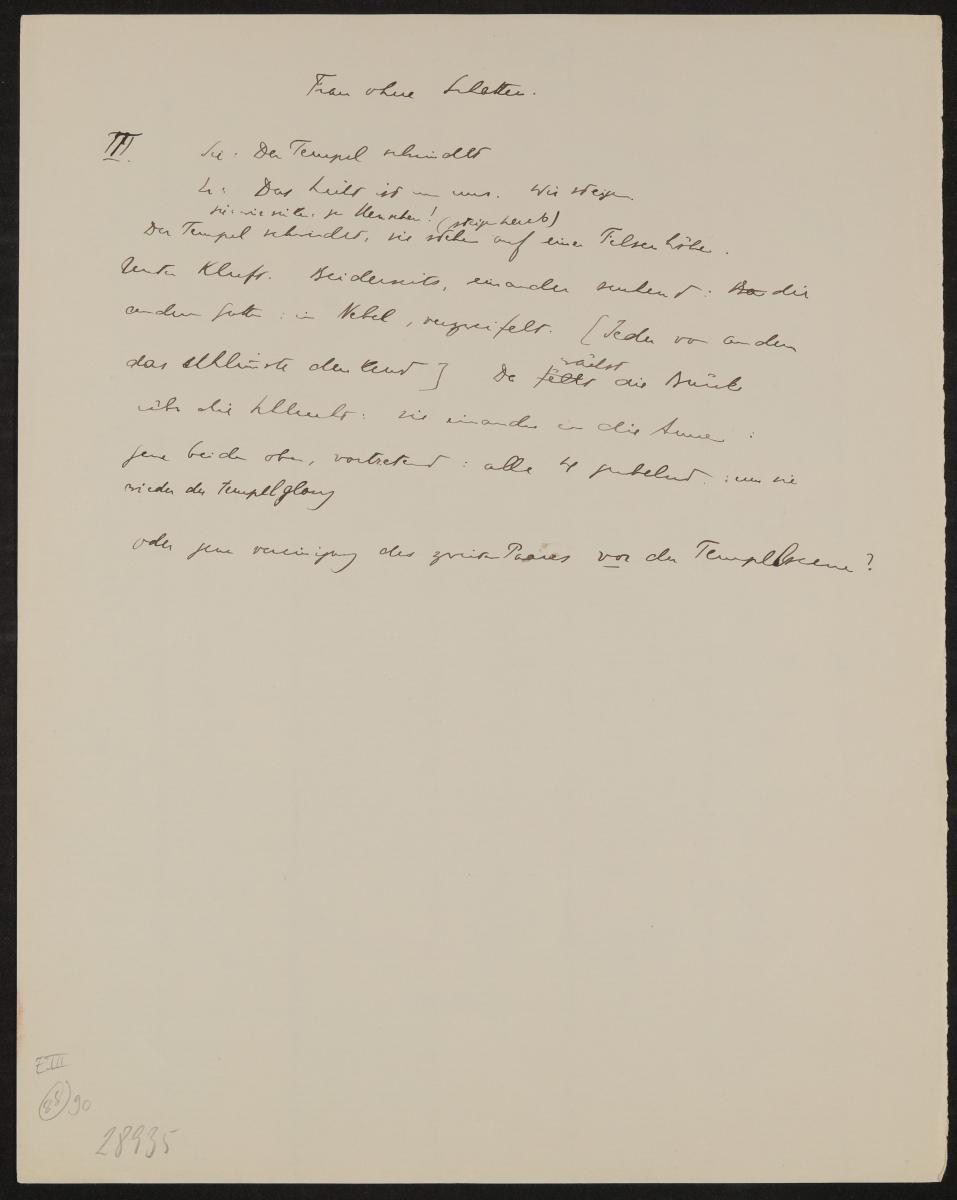 Frau ohne Schatten.
III. Sie: Der Tempel schwindet
Er: Das Licht ist in uns. Wir steigen
zu Menschen! (steigen herab)
Der Tempel schwindet, sie stehen auf einer Felsenhöhe.
Unten Kluft. Beiderseits, einander suchend: Da die
andern Gatten: in Nebel, verzweifelt. [Jeder vom andern
wächst
das schlimmste denkend] Da fällt die Brücke
über die Schlucht: sie einander in die Arme:
jene beiden oben, vortretend: alle 4 jubelnd: um sie
wieder der Tempelglanz
oder jene Vereinigung des zweiten Paares vor der Tempelscene?
E III
88 90
28935